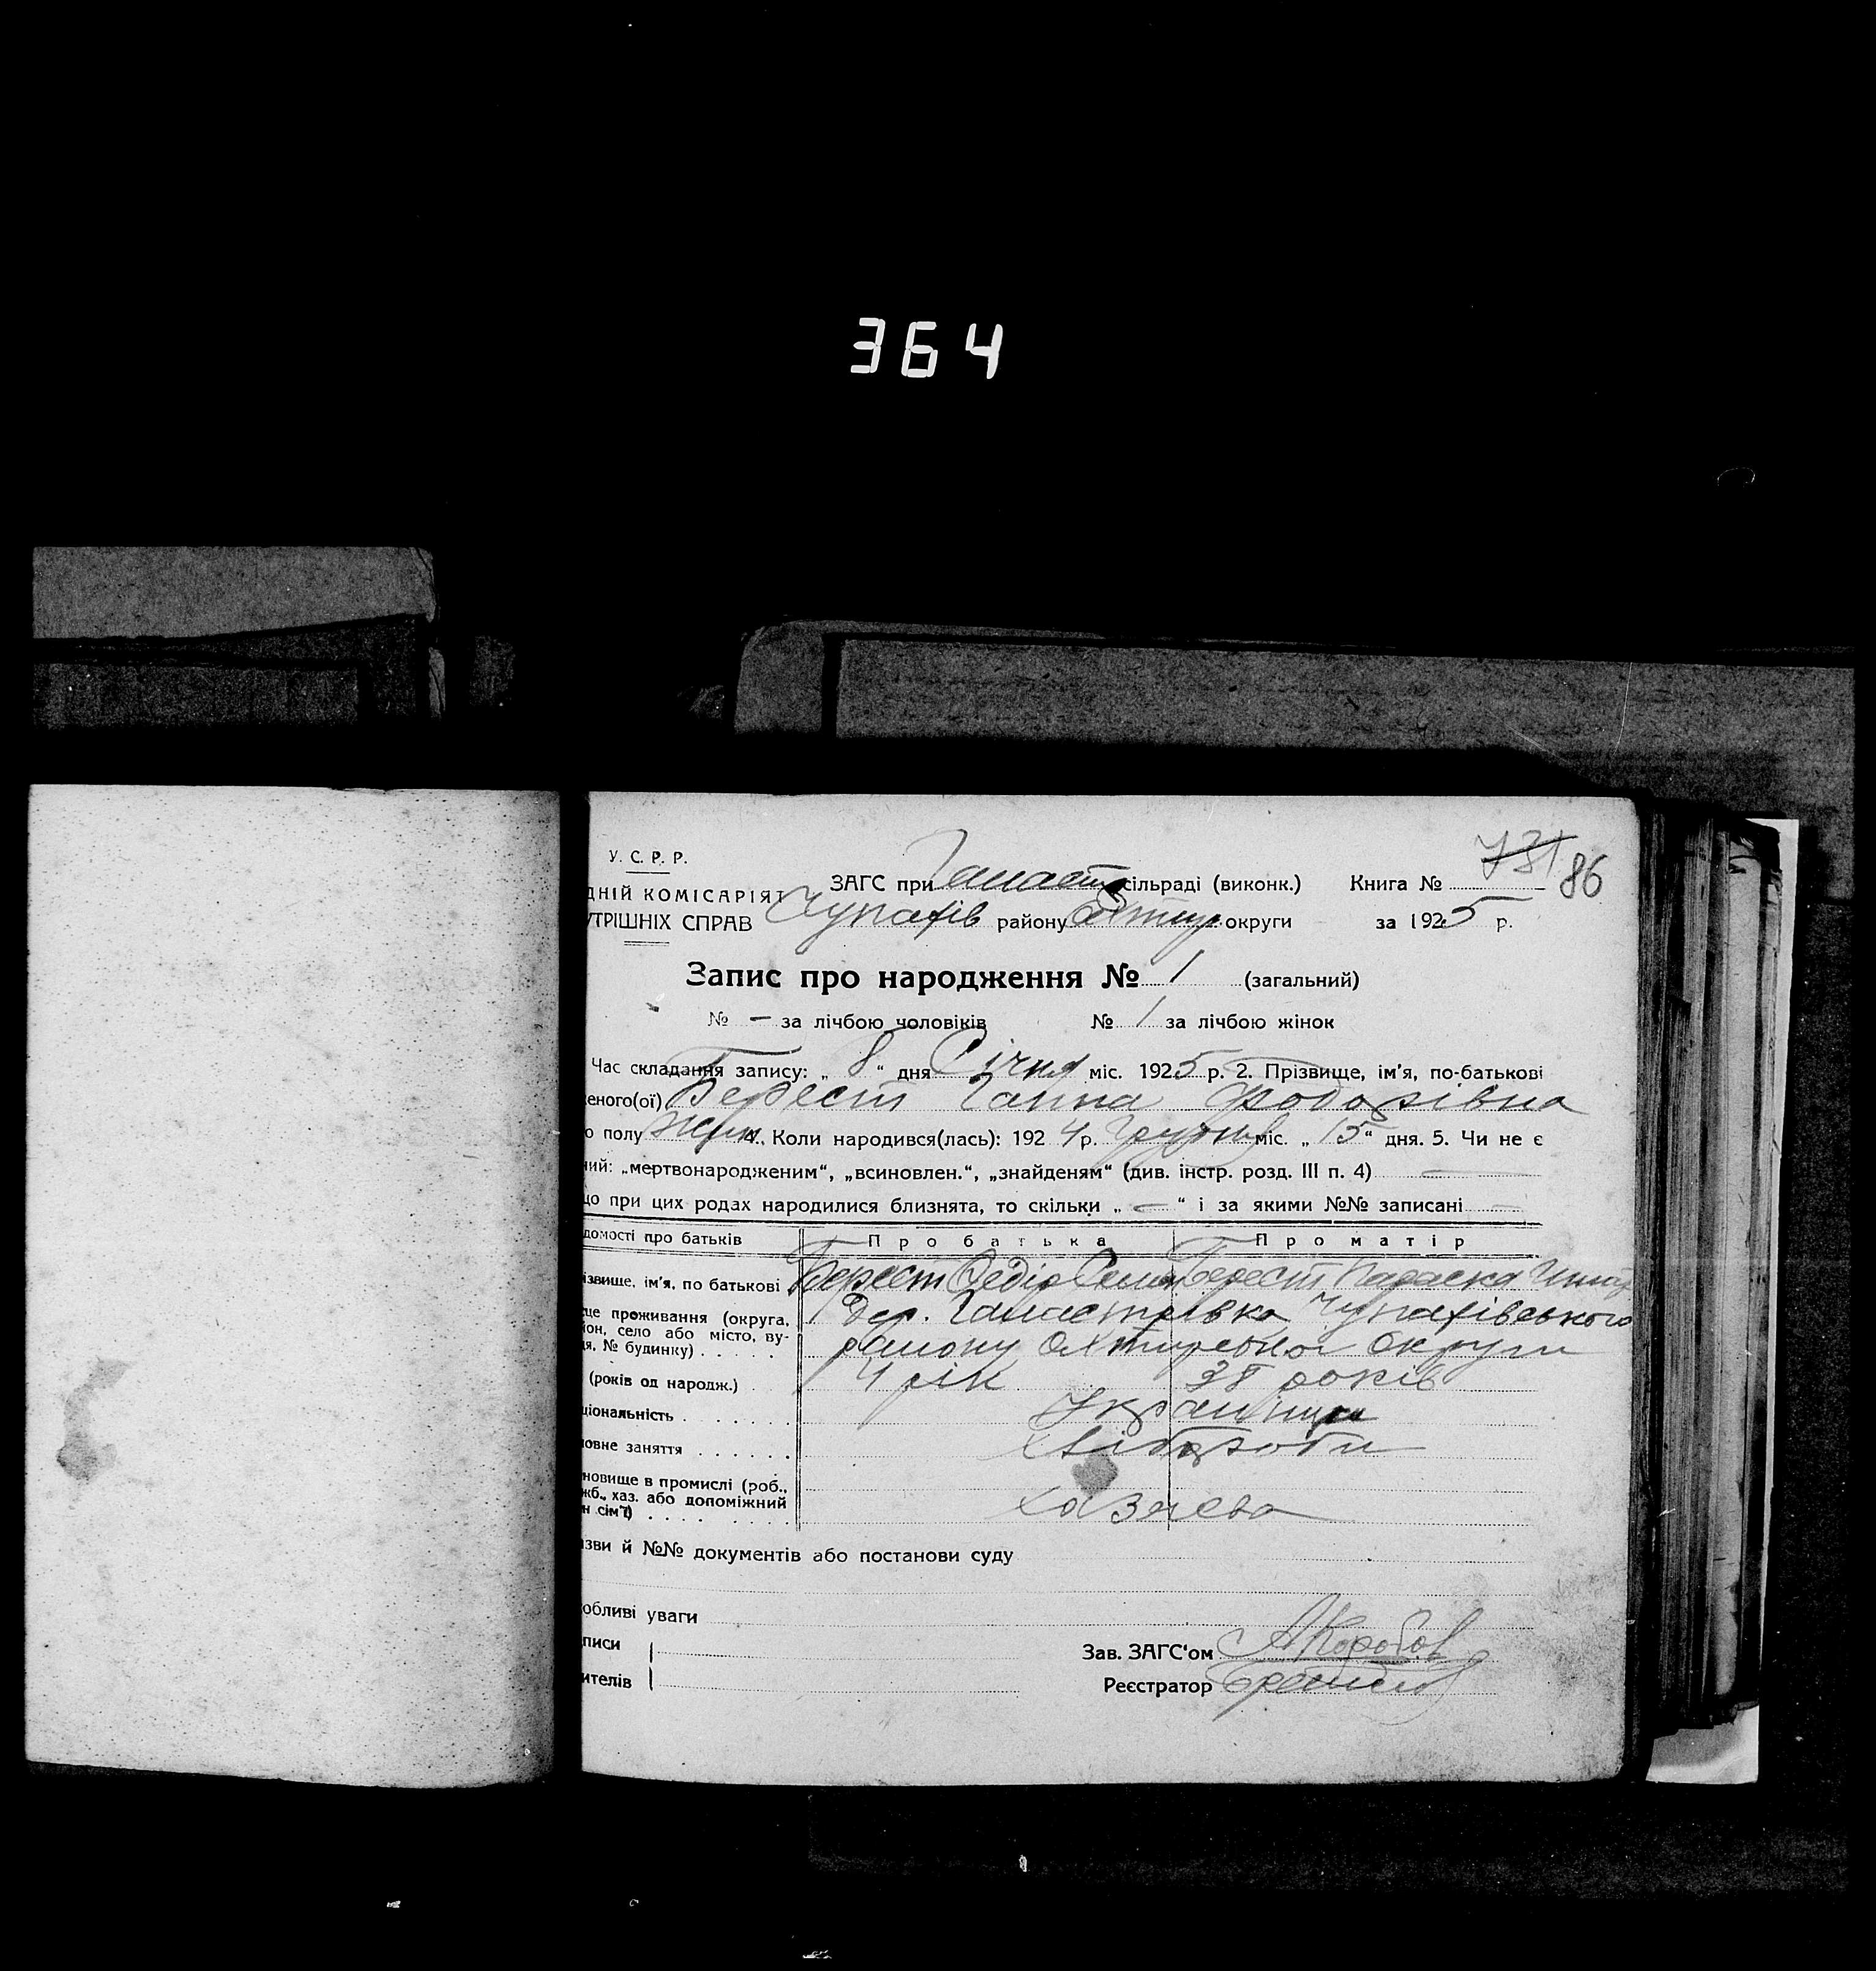 364
У. С. Р. Р.
ДНІЙ КОМІСАРІЯТ
УТРІШНІХ СПРАВ
ЗАГС при сільраді (виконк.) Книга № 731 86
Чупахів району Охтир округи за 1925 р.
Запис про народження № 1 (загальний)
№ — за лічбою чоловіків № 1 за лічбою жінок
Час складання запису: „ 8 “ дня Січня міс. 1925 р. 2. Прізвище, ім'я, по-батькові
еного(ої) Берест Ганна
о полу Жін. 4. Коли народився(лась): 1924 р. Грудня міс. „ 15 “ дня. 5. Чи не є
ний: „мертвонародженим“, „всиновлен.“, „знайденям“ (див. інстр. розд. III п. 4) —
що при цих родах народилися близнята, то скільки „ — “ і за якими №№ записані —
домості про батьків Про батька Про матір
ізвище, ім'я, по батькові Берест Федір Берест Параска
це проживання (округа, йон, село або місто, ву- я, № будинку) . . . . . дер. Чупахівського
району Охтирської округи
(років од народж.) . 41 рік 38 років
ціональність . . . . . . Українци
овне заняття . . . . . . хлібороби
новище в промислі (роб.,
жб., хаз. або допоміжний
н сім'ї) . . . . . . . хазяєва
азви й №№ документів або постанови суду
обливі уваги
писи
ителів
Зав. ЗАГС'ом АКоробов
Реєстратор